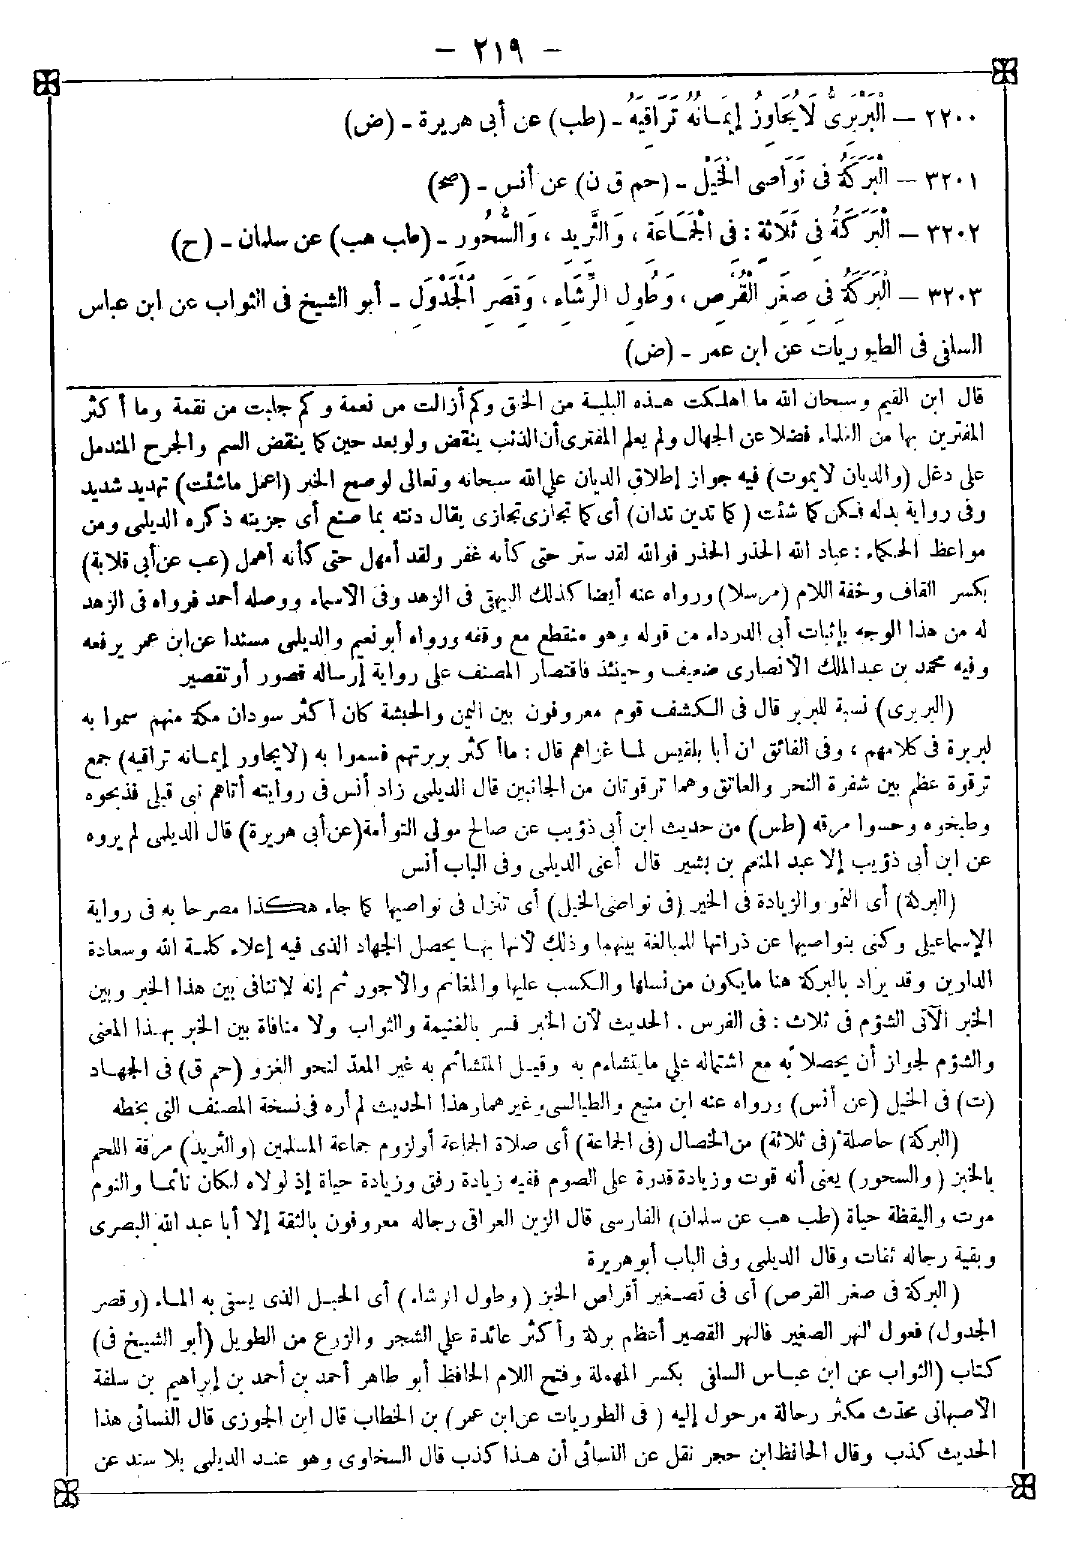 - ٢١٩ -
٢٢٠٠ - الْبَرْبَرِىُّ لَايُجَاوِزُ إِيمَانُهُ تَرَاقِيَهُ - (طب) عن أبى هريرة - (ض)
٣٢٠١ - الْبَرَكَةُ فِى نَوَاصِى الْخَيْلِ - (حم ق ن) عن أنس - (صح)
٣٢٠٢ - الْبَرَكَةُ فِى ثَلَاثَةٍ : فِى الْجَمَاعَةِ ، وَالثَّرِيدِ ، وَالسُّحُورِ - (طب هب) عن سلمان - (ح)
٣٢٠٣ - الْبَرَكَةُ فِى صِغَرِ الْقُرْصِ ، وَطُولِ الرِّشَاءِ ، وَقِصَرِ الْجَدْوَلِ - أبو الشيخ فى الثواب عن ابن عباس
السلفى فى الطيوريات عن ابن عمر - (ض)
قال ابن القيم وسبحان الله ما اهلكت هذه البلية من الخلق وكم أزالت من نعمة وكم جلبت من نقمة وما أكثر
المفترين بها من العلماء فضلا عن الجهال ولم يعلم المفترى أن الذنب ينقض ولو بعد حين كما ينقض السم والجرح المندمل
على دغل (والديان لايموت) فيه جواز إطلاق الديان على الله سبحانه وتعالى لو صح الخبر (اعمل ماشئت) تهديد شديد
وفى رواية بدله فكن كما شئت (كما تدين تدان) أى كما تجازى تجازى يقال دنته بما صنع أى جزيته ذكره الديلمى ومن
مواعظ الحكماء : عباد الله الحذر الحذر فوالله لقد ستر حتى كأنه غفر ولقد أمهل حتى كأنه أهمل (عب عن أبى قلابة)
بكسر القاف وخفة اللام (مرسلا) ورواه عنه أيضا كذلك البيهقى فى الزهد وفى الأسماء ووصله أحمد فرواه فى الزهد
له من هذا الوجه بإثبات أبى الدرداء من قوله وهو منقطع مع وقفه ورواه أبو نعيم والديلمى مسندا عن ابن عمر يرفعه
وفيه محمد بن عبد الملك الأنصارى ضعيف وحينئذ فاقتصار المصنف على رواية إرساله قصور أو تقصير
(البربرى) نسبة للبربر قال فى الكشف قوم معروفون بين اليمن والحبشة كان أكثر سودان مكة منهم سموا به
لبربرة فى كلامهم ، وفى الفائق ان أبا بلقيس لما غزاهم قال : ماأكثر بربرتهم فسموا به (لايجاوز إيمانه تراقيه) جمع
ترقوة عظم بين ثغرة النحر والعاتق وهما ترقوتان من الجانبين قال الديلمى زاد أنس فى روايته أتاهم نبى قبلى فذبحوه
وطبخوه وحسوا مرقه (طس) من حديث ابن أبى ذؤيب عن صالح مولى التوأمة (عن أبى هريرة) قال الديلمى لم يروه
عن ابن أبى ذؤيب إلا عبد المنعم بن بشير قال أعنى الديلمى وفى الباب أنس
(البركة) أى النمو والزيادة فى الخير (فى نواصى الخيل) أى تنزل فى نواصيها كما جاء هكذا مصرحا به فى رواية
الإسماعيلى وكنى بنواصيها عن ذواتها للمبالغة بينهما وذلك لأنها بها يحصل الجهاد الذى فيه إعلاء كلمة الله وسعادة
الدارين وقد يراد بالبركة هنا مايكون من نسلها والكسب عليها والمغانم والأجور ثم إنه لاتنافى بين هذا الخبر وبين
الخبر الآتى الشؤم فى ثلاث : فى الفرس . الحديث لأن الخبر فسر بالغنيمة والثواب ولا منافاة بين الخبر بهذا المعنى
والشؤم لجواز أن يحصلا به مع اشتماله على مايتشاءم به وقيل المتشائم به غير المعد لنحو الغزو (حم ق) فى الجهاد
(ت) فى الخيل (عن أنس) ورواه عنه ابن منيع والطيالسى وغيرهما وهذا الحديث لم أره فى نسخة المصنف التى بخطه
(البركة) حاصلة (فى ثلاثة) من الخصال (فى الجماعة) أى صلاة الجماعة أو لزوم جماعة المسلمين (والثريد) مرقة اللحم
بالخبز (والسحور) يعنى أنه قوت وزيادة قدرة على الصوم ففيه زيادة رفق وزيادة حياة إذ لولاه لكان نائما والنوم
موت واليقظة حياة (طب هب عن سلمان) الفارسى قال الزين العراقى رجاله معروفون بالثقة إلا أبا عبد الله البصرى
وبقية رجاله ثقات وقال الديلمى وفى الباب أبو هريرة
(البركة فى صغر القرص) أى فى تصغير أقراص الخبز (وطول الرشاء) أى الحبل الذى يستى به الماء (وقصر
الجدول) فعول النهر الصغير فالنهر القصير أعظم بركة وأكثر عائدة على الشجر والزرع من الطويل (أبو الشيخ فى)
كتاب (الثواب عن ابن عباس السلفى بكسر المهملة وفتح اللام الحافظ أبو طاهر أحمد بن أحمد بن إبراهيم بن سلفة
الأصبهانى محدث مكثر رحالة مرحول إليه (فى الطوريات عن ابن عمر) بن الخطاب قال ابن الجوزى قال النسائى هذا
الحديث كذب وقال الحافظ ابن حجر نقل عن النسائى أن هذا كذب قال السخاوى وهو عند الديلمى بلا سند عن